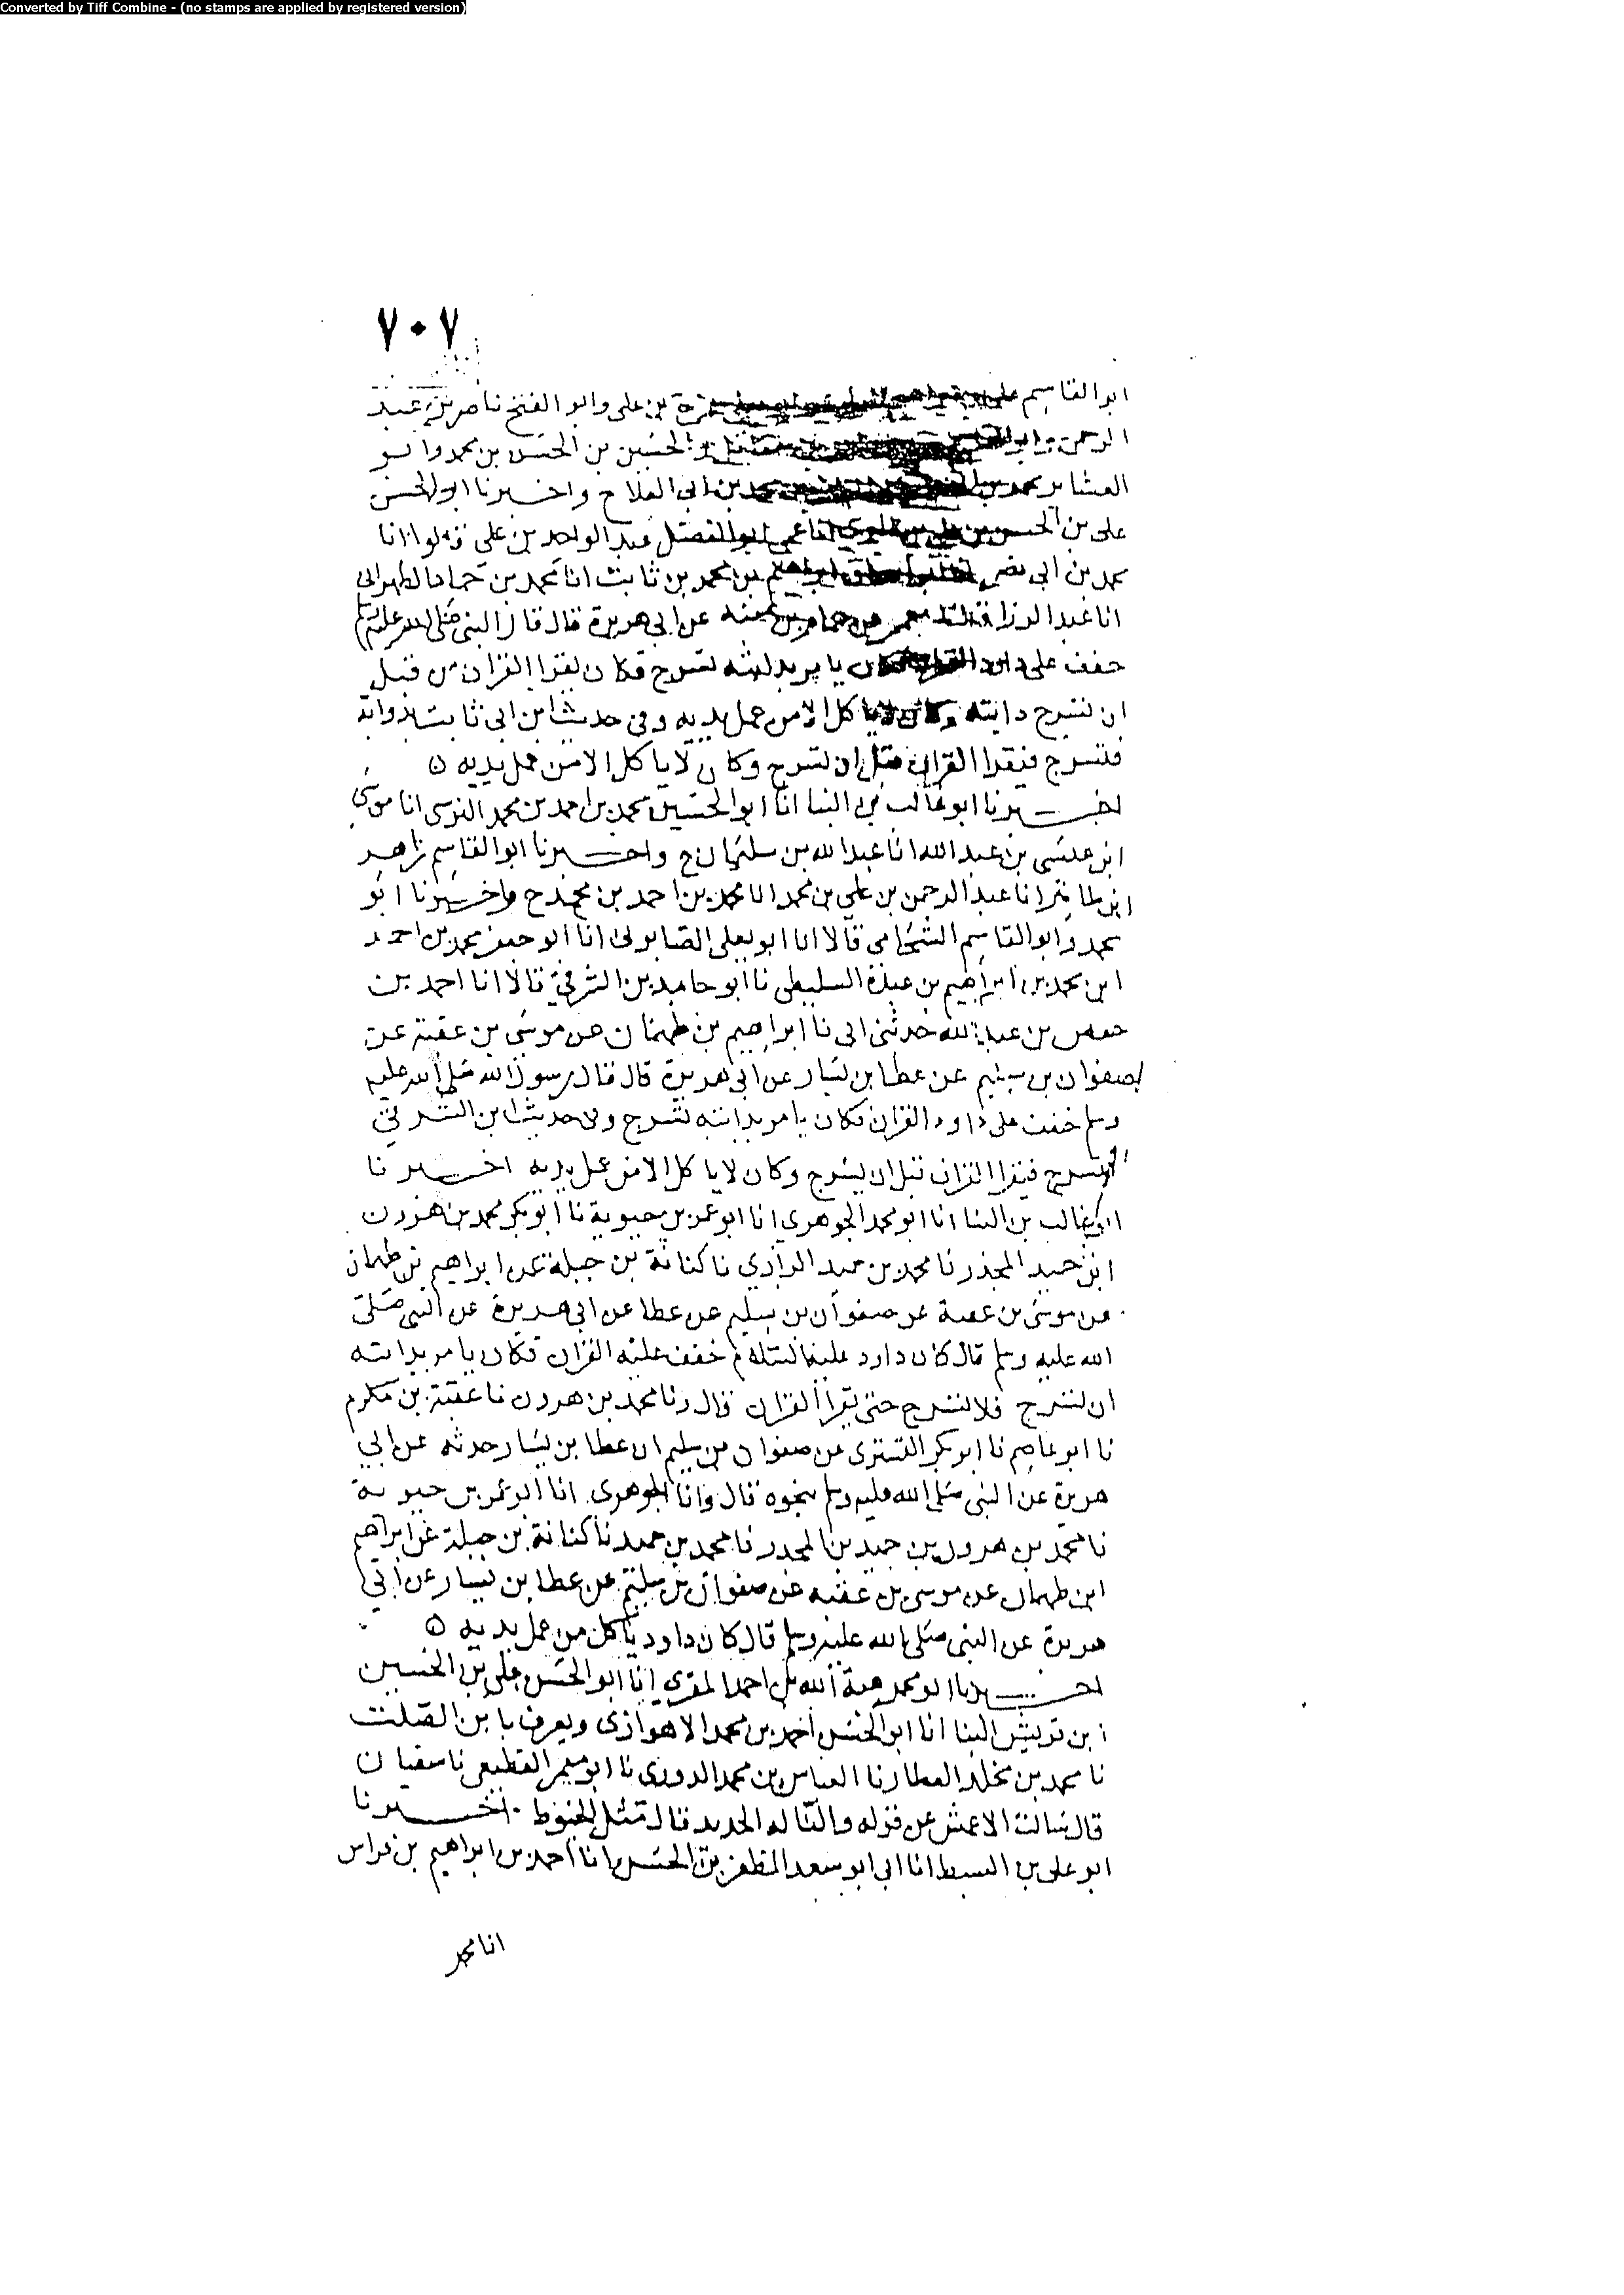 Converted by Tiff Combine - (no stamps are applied by registered version)
٧٠٧
ابو القاسم علي بن علي وابو الفتح ناصر بن عبد
الرحمن الحسين بن الحسن بن محمد وابو
العشاير محمد بن محمد بن ابي العلاج واخبرنا ابو الحسن
علي بن الحسن بن علي انا عمي ابو الفضل عبد الواحد بن علي قالوا انا
محمد بن ابي نصر ابراهيم بن محمد بن ثابت انا محمد بن حماد الطهراني
انا عبد الرزاق انا معمر عن همام بن منبه عن ابي هريرة قال قال النبي صلى الله عليه وسلم
خفف على داود القران فكان يامر بدابته تسرج فكان يقرا القران من قبل
ان تسرج دابته وكان لا ياكل الا من عمل يديه وفي حديث ابن ابي ثابت بدوابه
فتسرج فيقرا القران قبل ان تسرج وكان لا ياكل الا من عمل يديه ه
اخبرنا ابو غالب بن البنا انا ابو الحسين محمد بن احمد بن محمد النرسي انا موسى
ابن عيسى بن عبد الله انا عبد الله بن سليمان ح واخبرنا ابو القاسم زاهر
ابن طاهر انا عبد الرحمن بن علي بن محمد انا محمد بن احمد بن محمد ح واخبرنا ابو
محمد وابو القاسم الشحامي قالا انا ابو يعلى الصابوني انا ابو جعفر محمد بن احمد
ابن محمد بن ابراهيم بن عبدة السليطي نا ابو حامد بن الشرقي قالا انا احمد بن
حفص بن عبد الله حدثني ابي نا ابراهيم بن طهمان عن موسى بن عقبة عن
صفوان بن سليم عن عطا بن يسار عن ابي هريرة قال قال رسول الله صلى الله عليه
وسلم خفف على داود القران فكان يامر بدابته تسرج وفي حديث ابن الشرقي
ان تسرج فيقرا القران قبل ان يسرج وكان لا ياكل الا من عمل يديه اخبرنا
ابو غالب بن البنا انا ابو محمد الجوهري انا ابو عمر بن حيوية نا ابو بكر محمد بن هرون
ابن حميد المجدر نا محمد بن حميد الرازي نا كنانة بن جبلة عن ابراهيم بن طهمان
عن موسى بن عقبة عن صفوان بن سليم عن عطا عن ابي هريرة عن النبي صلى
الله عليه وسلم قال كان داود عليه خفف عليه القران فكان يامر بدابته
ان تسرج فلا تسرج حتى يقرا القران قال ونا محمد بن هرون نا عقبة بن مكرم
نا ابو عاصم نا ابو بكر التستري عن صفوان بن سليم ان عطا بن يسار حدثه عن ابي
هريرة عن النبي صلى الله عليه وسلم بنحوه قال وانا الجوهري انا ابو عمر بن حيوية
نا محمد بن هرون بن حميد بن المجدر نا محمد بن حميد نا كنانة بن جبلة عن ابراهيم
ابن طهمان عن موسى بن عقبه عن صفوان بن سليم عن عطا بن يسار عن ابي
هريرة عن النبي صلى الله عليه وسلم قال كان داود ياكل من عمل يديه ه
اخبرنا ابو محمد هبة الله بن احمد المقري انا ابو الحسن علي بن الحسين
ابن قريش البنا انا ابو الحسن احمد بن محمد الاهوازي ويعرف بابن الصلت
نا محمد بن مخلد العطار نا العباس بن محمد الدوري نا ابو معمر القطيعي نا سفيان
قال سالت الاعمش عن قوله والنا له الحديد قال مثل الخيوط اخبرنا
ابو علي بن السبط انا ابي ابو سعد المظفر بن الحسن انا احمد بن ابراهيم بن فراس
انا محمد